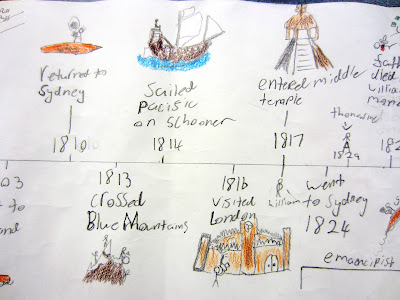 returned to
Sydney
1810
Sailed
Pacific
on Schooner
1814
entered middle
temple
1817
died
1813
crossed
Blue Mountains
1816
visited
London
William
went
to Sydney
1824
emancipist